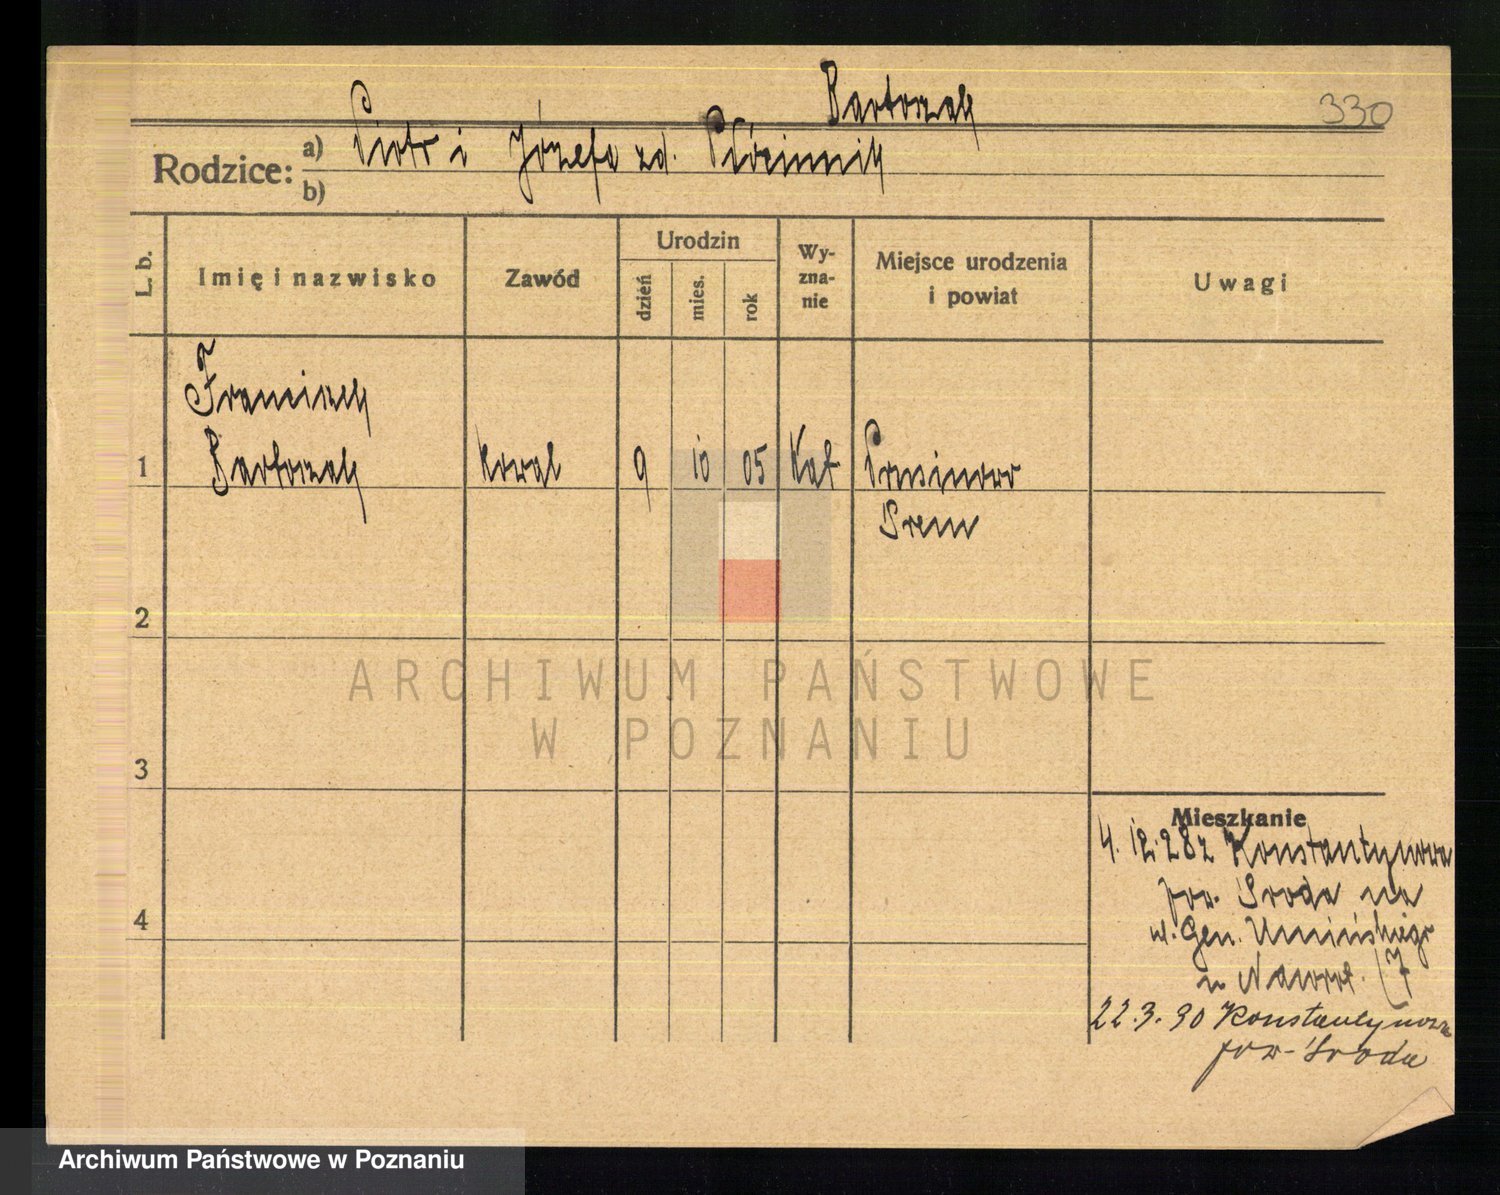 Bartorzak
330
Rodzice: a) Piotr i Józefa zd. Płócinnik
b)
L. b.
Imię i nazwisko
Zawód
Urodzin
dzień
mies.
rok
Wy-
zna-
nie
Miejsce urodzenia
i powiat
Uwagi
Franciszek
1 Bartorzak kowal 9 10 05 Kat Prusinowo
Śrem
2
3
4
Mieszkanie
4. 12. 28 z Konstantynowa
pow. Środa na
ul. Gen. Umińskiego
u Nawrot. (7
22.3.30 Konstantynowa
pow - Środa
ARCHIWUM PAŃSTWOWE
W POZNANIU
Archiwum Państwowe w Poznaniu